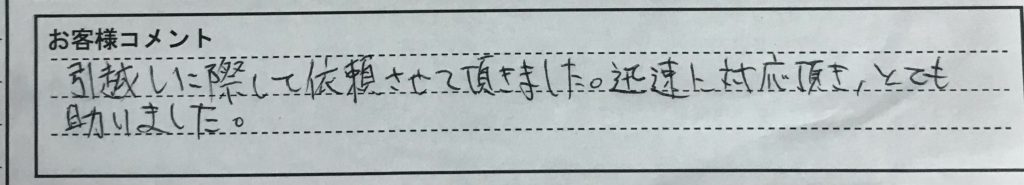 お客様コメント
引越しに際して依頼させて頂きました。迅速に対応頂き,とても
助りました。